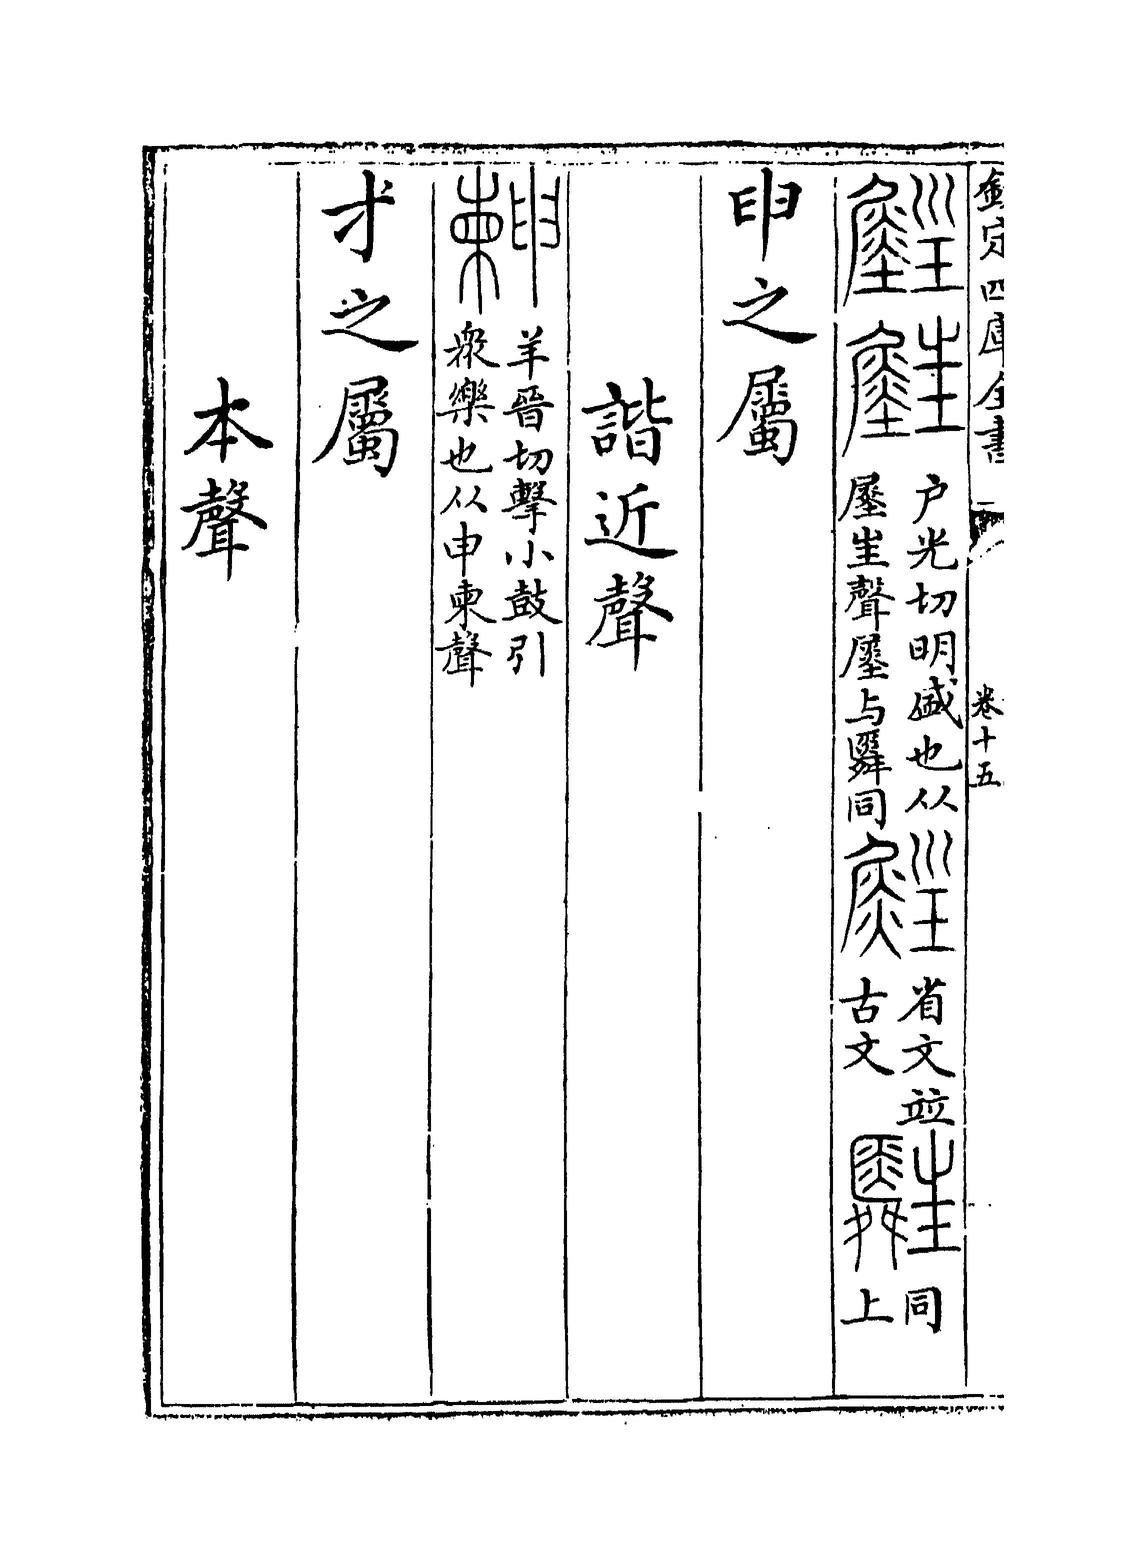 欽定四庫全書
卷十五
户光切明盛也从
生聲與同
省文竝
古文
同
上
申之屬
諧近聲
羊晉切擊小鼓引
衆樂也从申柬聲
才之屬
本聲